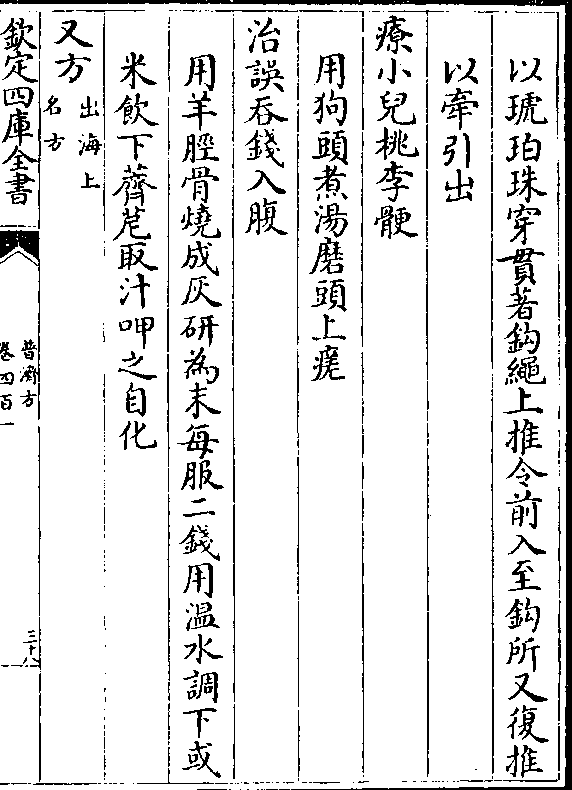 以琥珀珠穿貫著鈎繩上推令前入至鈎所又復推
以牽引出
療小兒桃李骾
用狗頭煮湯磨頭上瘥
治誤吞錢入腹
用羊脛骨燒成灰研為末每服二錢用温水調下或
米飲下薺苨取汁呷之自化
又方出海上名方
欽定四庫全書
普濟方
卷四百一
三十八